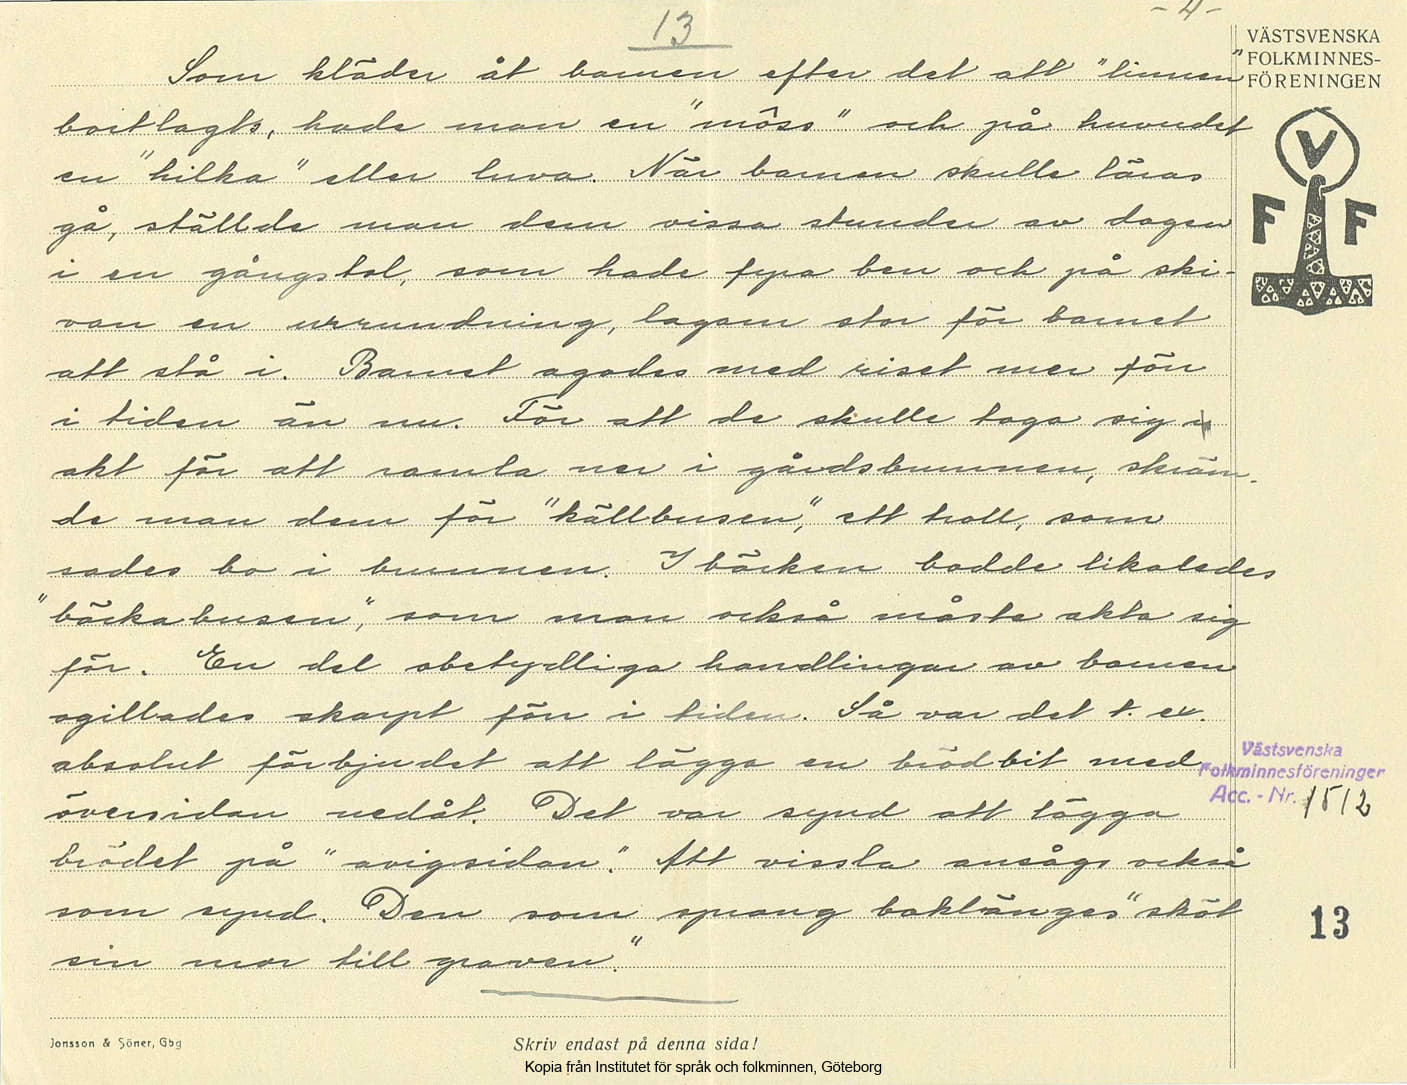 13
- 4 -
VÄSTSVENSKA
FOLKMINNES-
FÖRENINGEN
V
F F
Som kläder åt barnen efter det att "linnen"
bortlagts, hade man en "möss" och på huvudet
en "hilka" eller luva. När barnen skulle läras
gå, ställde man dem vissa stunder av dagen
i en gångstol, som hade fyra ben och på ski-
van en urrundning, lagom stor för barnet
att stå i. Barnet agades med riset mer förr
i tiden än nu. För att de skulle taga sig i
akt för att ramla ner i gårdsbrunnen, skräm-
de man dem för "källbusen", ett troll, som
sades bo i brunnen. I bäcken bodde likaledes
"bäckabusen", som man också måste akta sig
för. En del obetydliga handlingar av barnen
ogillades skarpt förr i tiden. Så var det t. ex.
absolut förbjudet att lägga en brödbit med
översidan nedåt. Det var synd att lägga
brödet på "avigsidan". Att vissla ansågs också
som synd. Den som sprang baklänges "sköt
sin mor till graven."
Västsvenska
Folkminnesföreninger
Acc. - Nr. 1512
13
Jonsson & Söner, Gbg
Skriv endast på denna sida!
Kopia från Institutet för språk och folkminnen, Göteborg